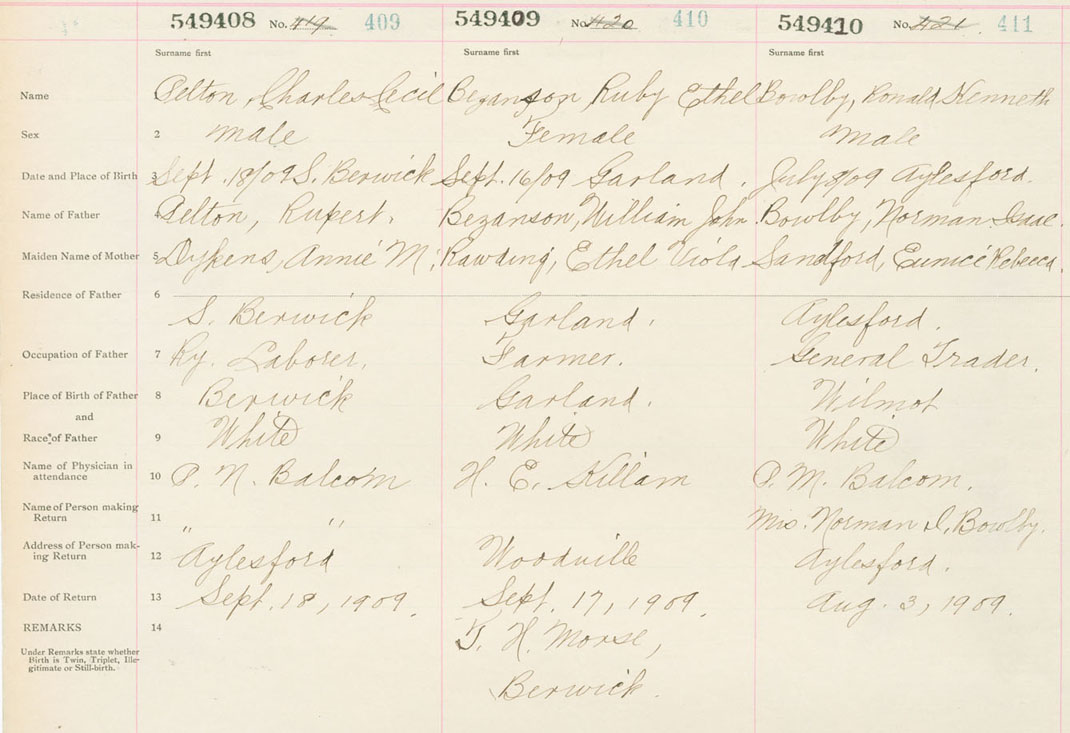 549408 No. 419 409 549409 No. 420 410 549410 No. 421 411
Surname first Surname first Surname first
Name Pelton, Charles Cecil Bezanson Ruby Ethel Bowlby, Ronald Kenneth
Sex 2 male Female male
Date and Place of Birth 3 Sept. 18/09 S. Berwick Sept. 16/09 Garland. July 8/09 Aylesford
Name of Father 4 Pelton, Rupert. Bezanson, William John Bowlby, Norman Isaac.
Maiden Name of Mother 5 Dykens, Annie M. Rawding, Ethel Viola Sandford, Eunice Rebecca.
Residence of Father 6
S. Berwick Garland. Aylesford.
Occupation of Father 7 Ry. Laborer. Farmer. General Trader.
Place of Birth of Father 8 Berwick Garland. Wilmot
and
Race of Father 9 White White White
Name of Physician in
attendance 10 P. N. Balcom H. E. Killam P. M. Balcom.
Name of Person making
Return 11 " " Mrs. Norman I. Bowlby.
Address of Person mak-
ing Return 12 Aylesford Woodville Aylesford.
Date of Return 13 Sept. 18, 1909. Sept. 17, 1909. Aug. 3, 1909.
REMARKS 14 T. H. Morse,
Under Remarks state whether
Birth is Twin, Triplet, Ille-
gitimate or Still-birth.
Berwick.